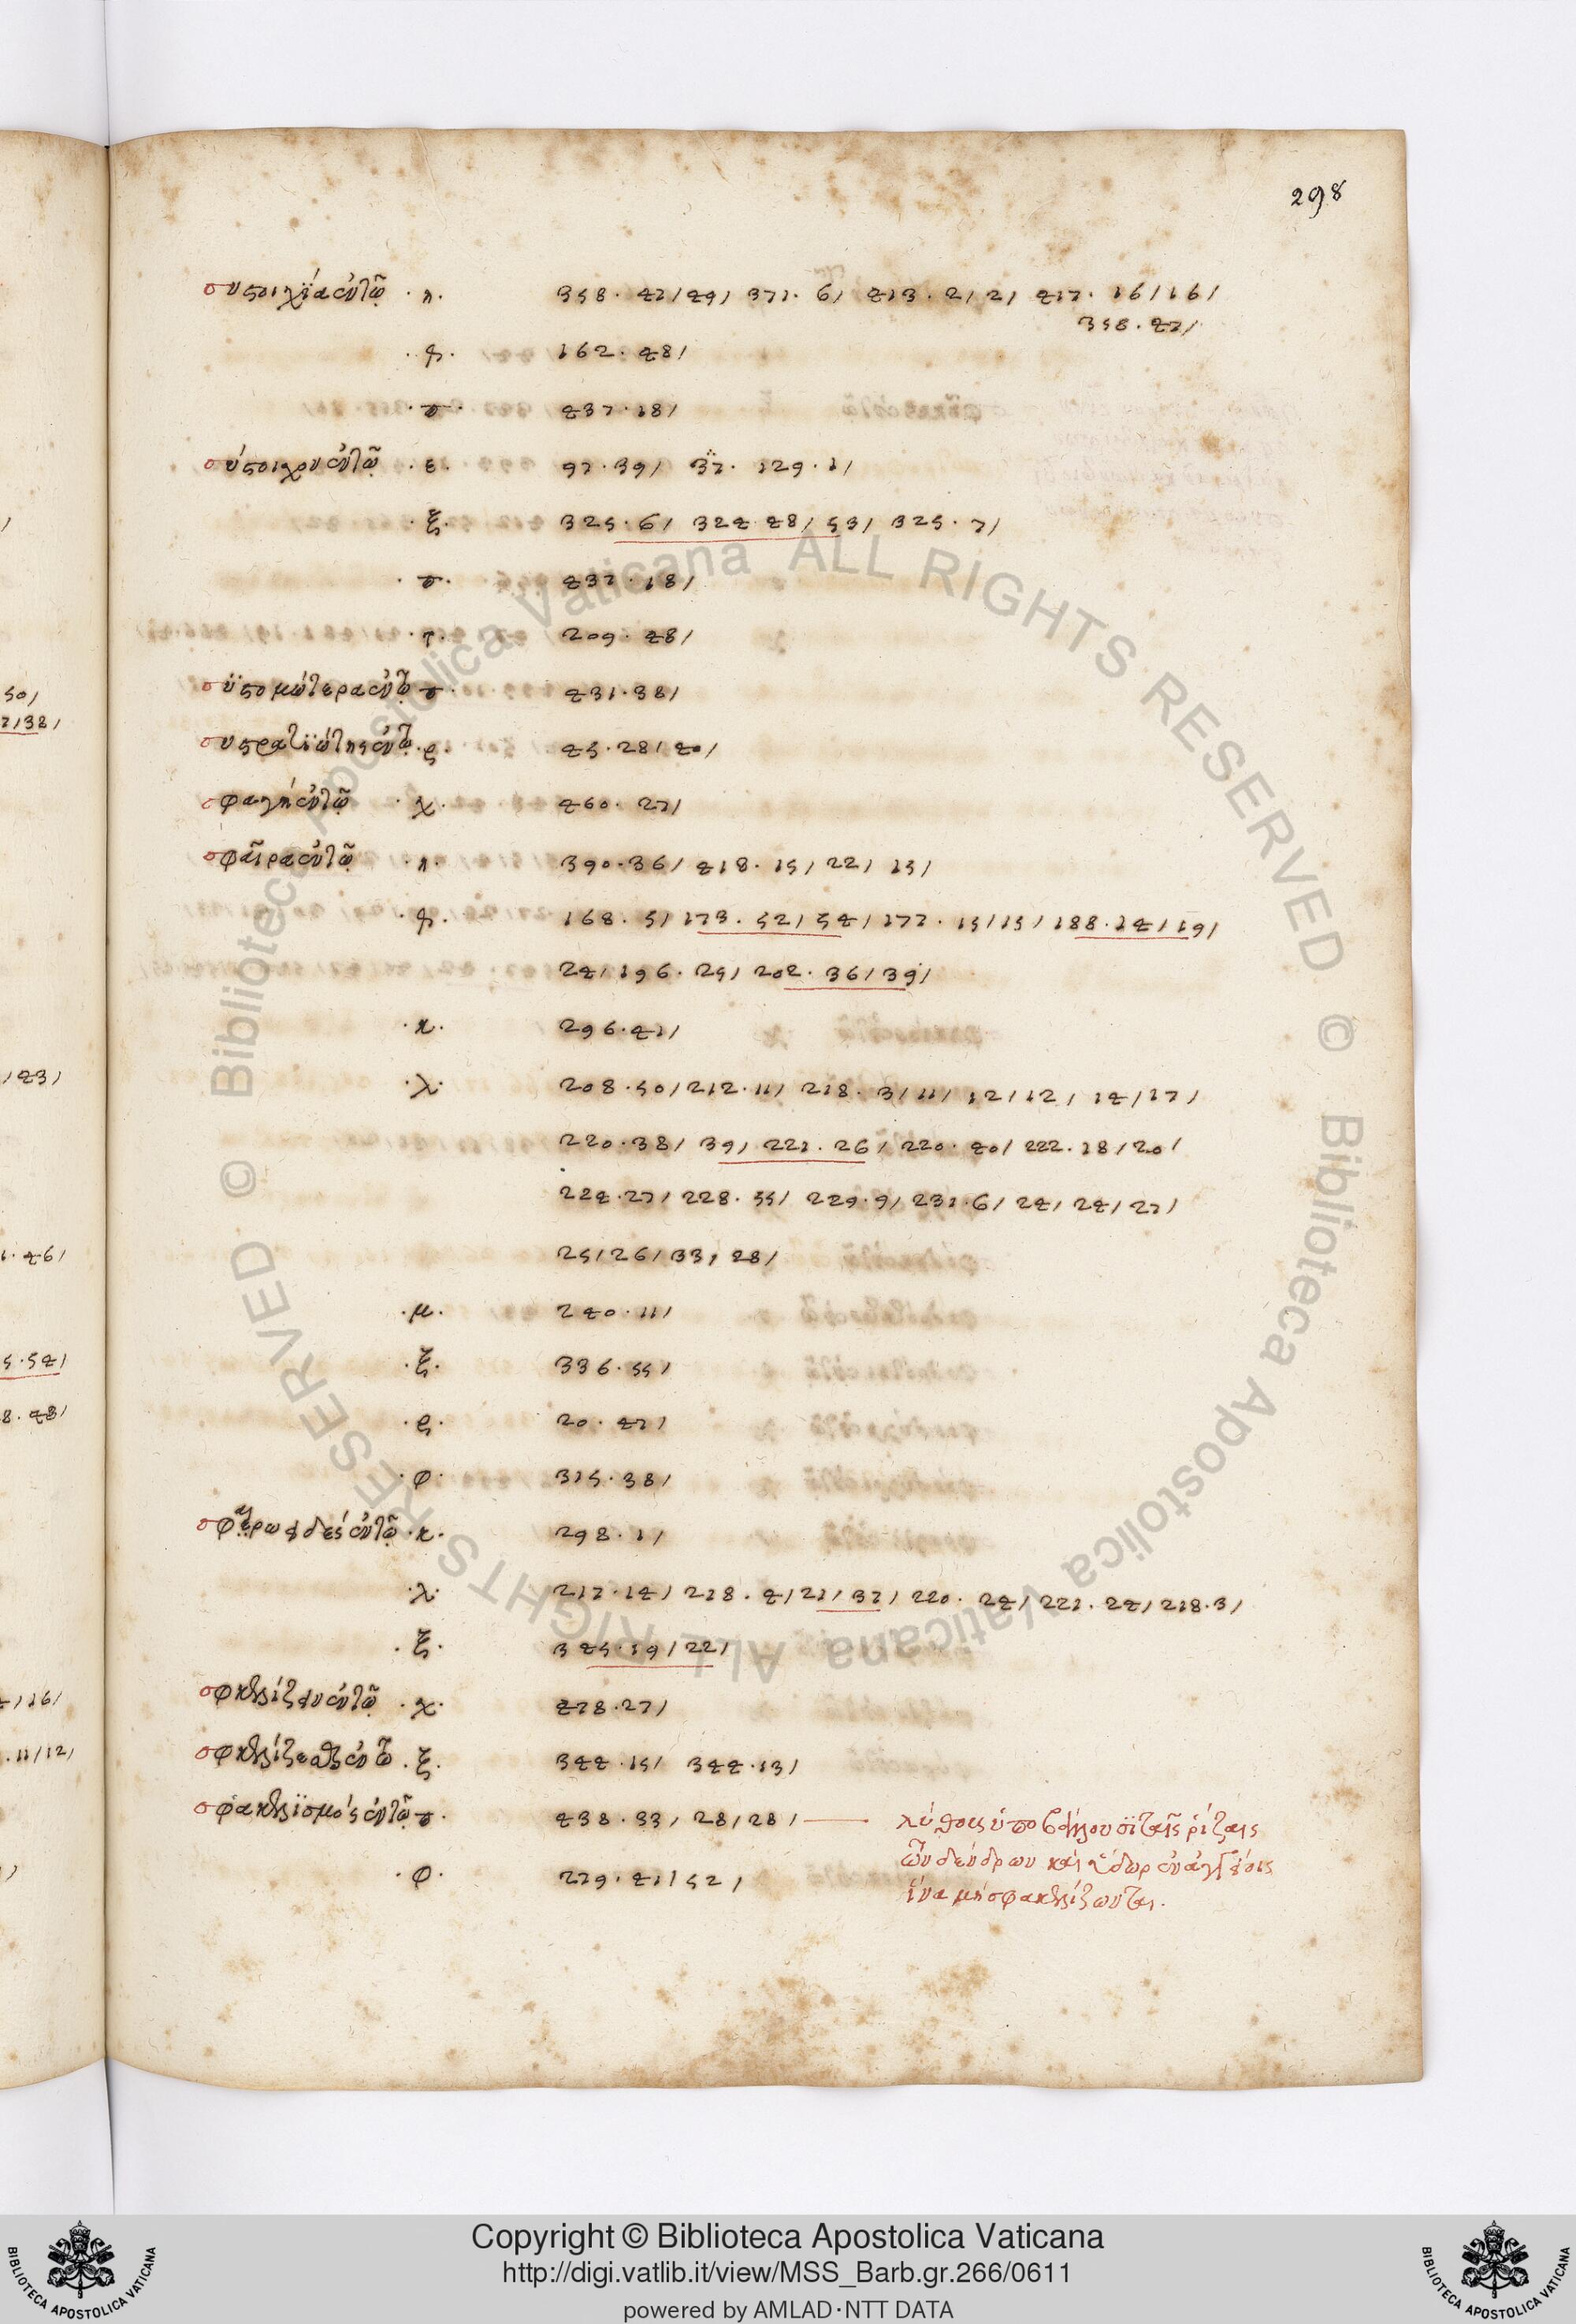 298
συστοιχία ἐν τῷ · η · 358 · 47 / 49 / 371 · 6 / 413 · 2 / 2 / 417 · 16 / 16 /
358 · 47 /
162 · 48 /
· σ · 437 · 18 /
σύστοιχον ἐν τῷ · ε · 97 · 39 / 37 · 129 · 1 /
· ξ · 325 · 6 / 324 48 / 53 / 325 · 7 /
· σ · 437 · 18 /
· τ · 209 · 48 /
ἐν τῷ σ · 431 · 38 /
συστρατϊώτης ἐν τῷ · ρ · 45 · 28 / 40 /
σφαγή ἐν τῷ · χ · 460 · 27 /
σφαῖρα ἐν τῷ · η · 390 · 36 / 418 · 15 / 22 / 15 /
168 · 5 / 173 · 52 / 54 / 177 · 15 / 15 / 188 · 14 / 19 /
24 / 196 · 25 / 202 · 36 / 39 /
· κ · 296 · 41 /
· λ · 208 · 50 / 212 · 11 / 218 · 3 / 11 / 12 / 12 / 14 / 17 /
220 · 38 / 39 / 221 · 26 / 220 · 40 / 222 · 18 / 20 /
224 · 27 / 228 · 55 / 229 · 9 / 231 · 6 / 24 / 24 / 27 /
25 / 26 / 33 / 28 /
· μ · 240 · 11 /
· ξ · 336 · 55 /
· ρ · 20 · 47 /
· φ · 315 · 38 /
ἐν τῷ · κ · 298 · 1 /
· λ · 217 · 14 / 218 · 4 / 21 / 37 / 220 · 24 / 221 · 24 / 218 · 3 /
· ξ · 345 · 19 / 22 /
ἐν τῷ · χ · 478 · 27 /
ἐν τῷ · ξ · 344 · 15 / 344 · 13 /
σφακελϊσμός ἐν τῷ σ · 438 · 33 / 28 / 28 / λίθους ὑποβάλλουσϊ ταῖς ῥίζαις
τῶν δένδρων καὶ ὕδωρ
ἵνα μὴ σφακελίζωνται.
· φ · 279 · 41 / 52 /
Copyright © Biblioteca Apostolica Vaticana
http://digi.vatlib.it/view/MSS_Barb.gr.266/0611
powered by AMLAD·NTT DATA
BIBLIOTECA APOSTOLICA VATICANA
BIBLIOTECA APOSTOLICA VATICANA
© Biblioteca Apostolica Vaticana ALL RIGHTS RESERVED
© Biblioteca Apostolica Vaticana ALL RIGHTS RESERVED